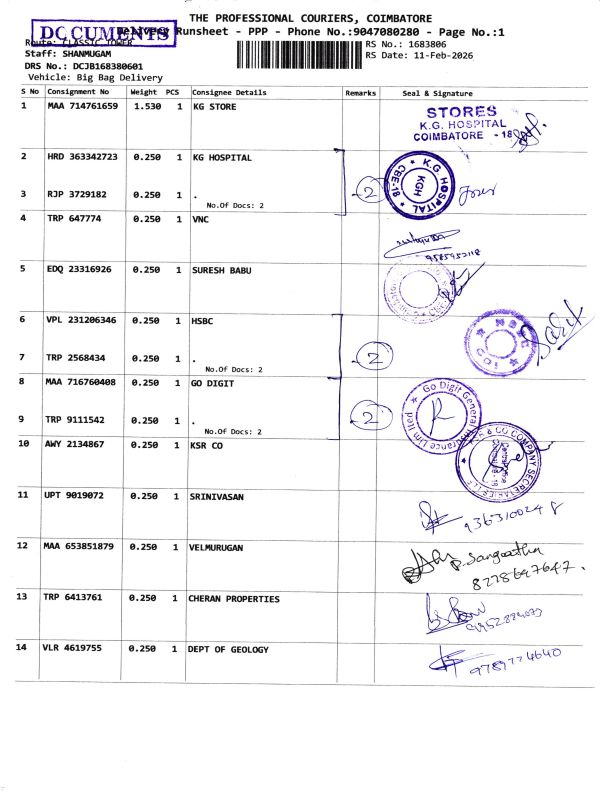 THE PROFESSIONAL COURIERS, COIMBATORE
DOCUMENTS
Delivery Runsheet - PPP - Phone No.:9047080280 - Page No.:1
Route: CLASSIC TOWER
RS No.: 1683806
Staff: SHANMUGAM
RS Date: 11-Feb-2026
DRS No.: DCJB168380601
Vehicle: Big Bag Delivery
S No Consignment No Weight PCS Consignee Details Remarks Seal & Signature
1 MAA 714761659 1.530 1 KG STORE
STORES
K.G. HOSPITAL
COIMBATORE - 18
2 HRD 363342723 0.250 1 KG HOSPITAL
K.G. HOSPITAL
CBE-18
KGH
2
3 RJP 3729182 0.250 1 .
No.Of Docs: 2
4 TRP 647774 0.250 1 VNC
5 EDQ 23316926 0.250 1 SURESH BABU
6 VPL 231206346 0.250 1 HSBC
2
7 TRP 2568434 0.250 1 .
No.Of Docs: 2
8 MAA 716760408 0.250 1 GO DIGIT
Go Digit General Insurance Limited
2
9 TRP 9111542 0.250 1 .
No.Of Docs: 2
10 AWY 2134867 0.250 1 KSR CO
& CO COMPANY SECRETARIES LLP
11 UPT 9019072 0.250 1 SRINIVASAN
9363100248
12 MAA 653851879 0.250 1 VELMURUGAN
P. Sangeetha
8278647647.
13 TRP 6413761 0.250 1 CHERAN PROPERTIES
14 VLR 4619755 0.250 1 DEPT OF GEOLOGY
9789774640